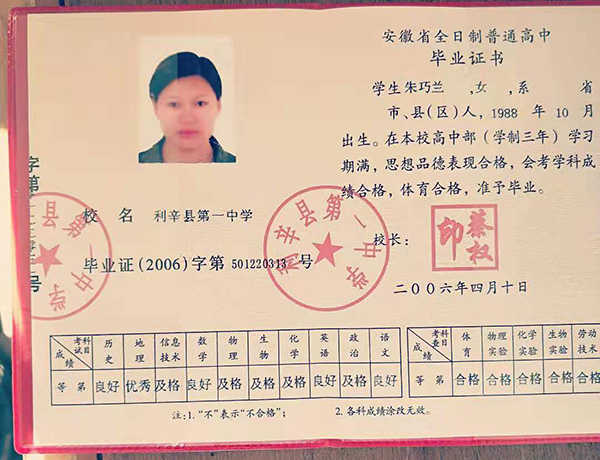 安徽省全日制普通高中
毕业证书
学生朱巧兰,女,系 省
市、县(区)人,1988 年 10 月
出生。在本校高中部(学制三年)学习
期满,思想品德表现合格,会考学科成
绩合格,体育合格,准予毕业。
校 名 利辛县第一中学
校长:
蔡权印
毕业证(2006)字第 501220313 号
二〇〇六年四月十日
利辛县第一中学
字第
号
第一中学
考试科目 成绩 历史 地理 信息技术 数学 物理 生物 化学 英语 政治 语文
等 第 良好 优秀 及格 良好 及格 及格 及格 良好 及格 良好
考查科目 成绩 体育 物理实验 化学实验 生物实验 劳动技术
等 第 合格 合格 合格 合格 合格
注:1.“不”表示“不合格”; 2.各科成绩涂改无效。